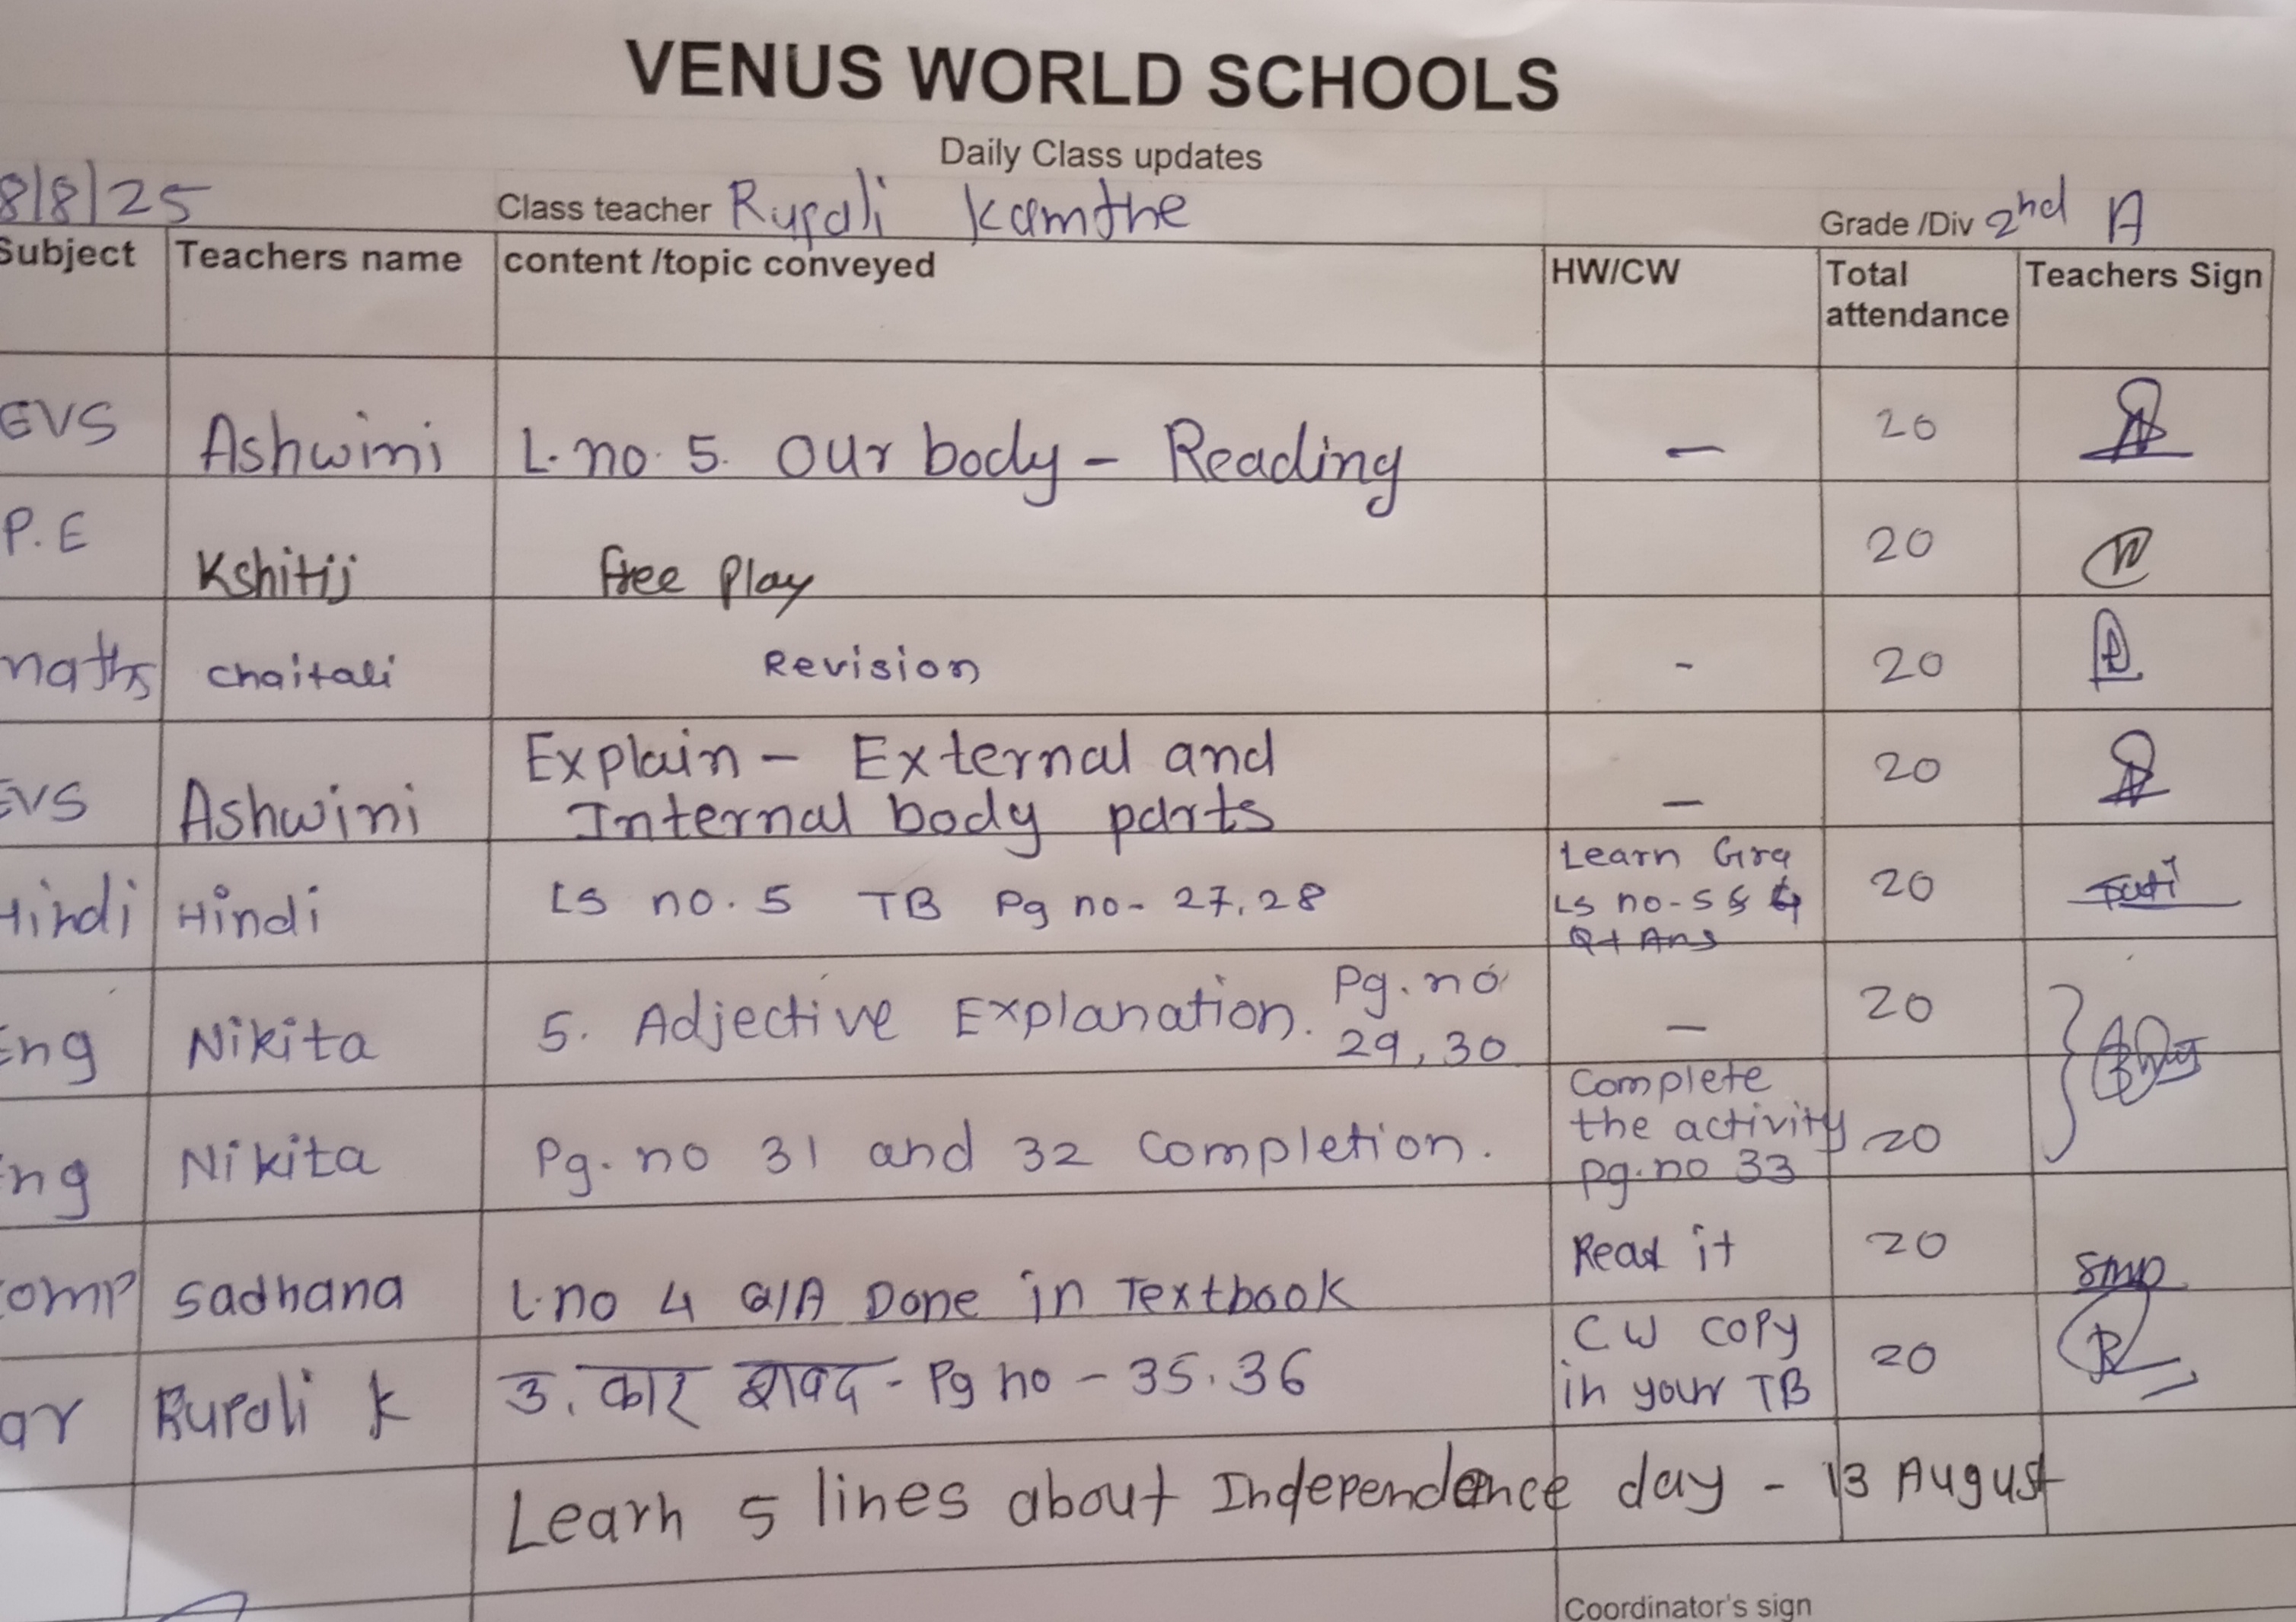 VENUS WORLD SCHOOLS
Daily Class updates
8/8/25 Class teacher Rupali Kamthe Grade /Div 2nd A
Subject Teachers name content /topic conveyed HW/CW Total attendance Teachers Sign
EVS Ashwini L. no. 5. Our body - Reading — 20
P.E Kshitij free Play 20
maths chaitali Revision - 20
EVS Ashwini Explain - External and
Internal body parts — 20
Hindi Hindi Ls no. 5 TB Pg no- 27,28 Learn Gra
Ls no-5 & 4
Q+ Ans 20
Eng Nikita 5. Adjective Explanation. Pg. no
29, 30 — 20
Eng Nikita Pg. no 31 and 32 completion. Complete
the activity
pg. no 33 20
Comp Sadhana L.no 4 Q/A Done in Textbook Read it 20 SMP
ar Rupali K उ. कार शब्द - Pg no - 35.36 CW copy
in your TB 20
Learn 5 lines about Independence day - 13 August
Coordinator's sign